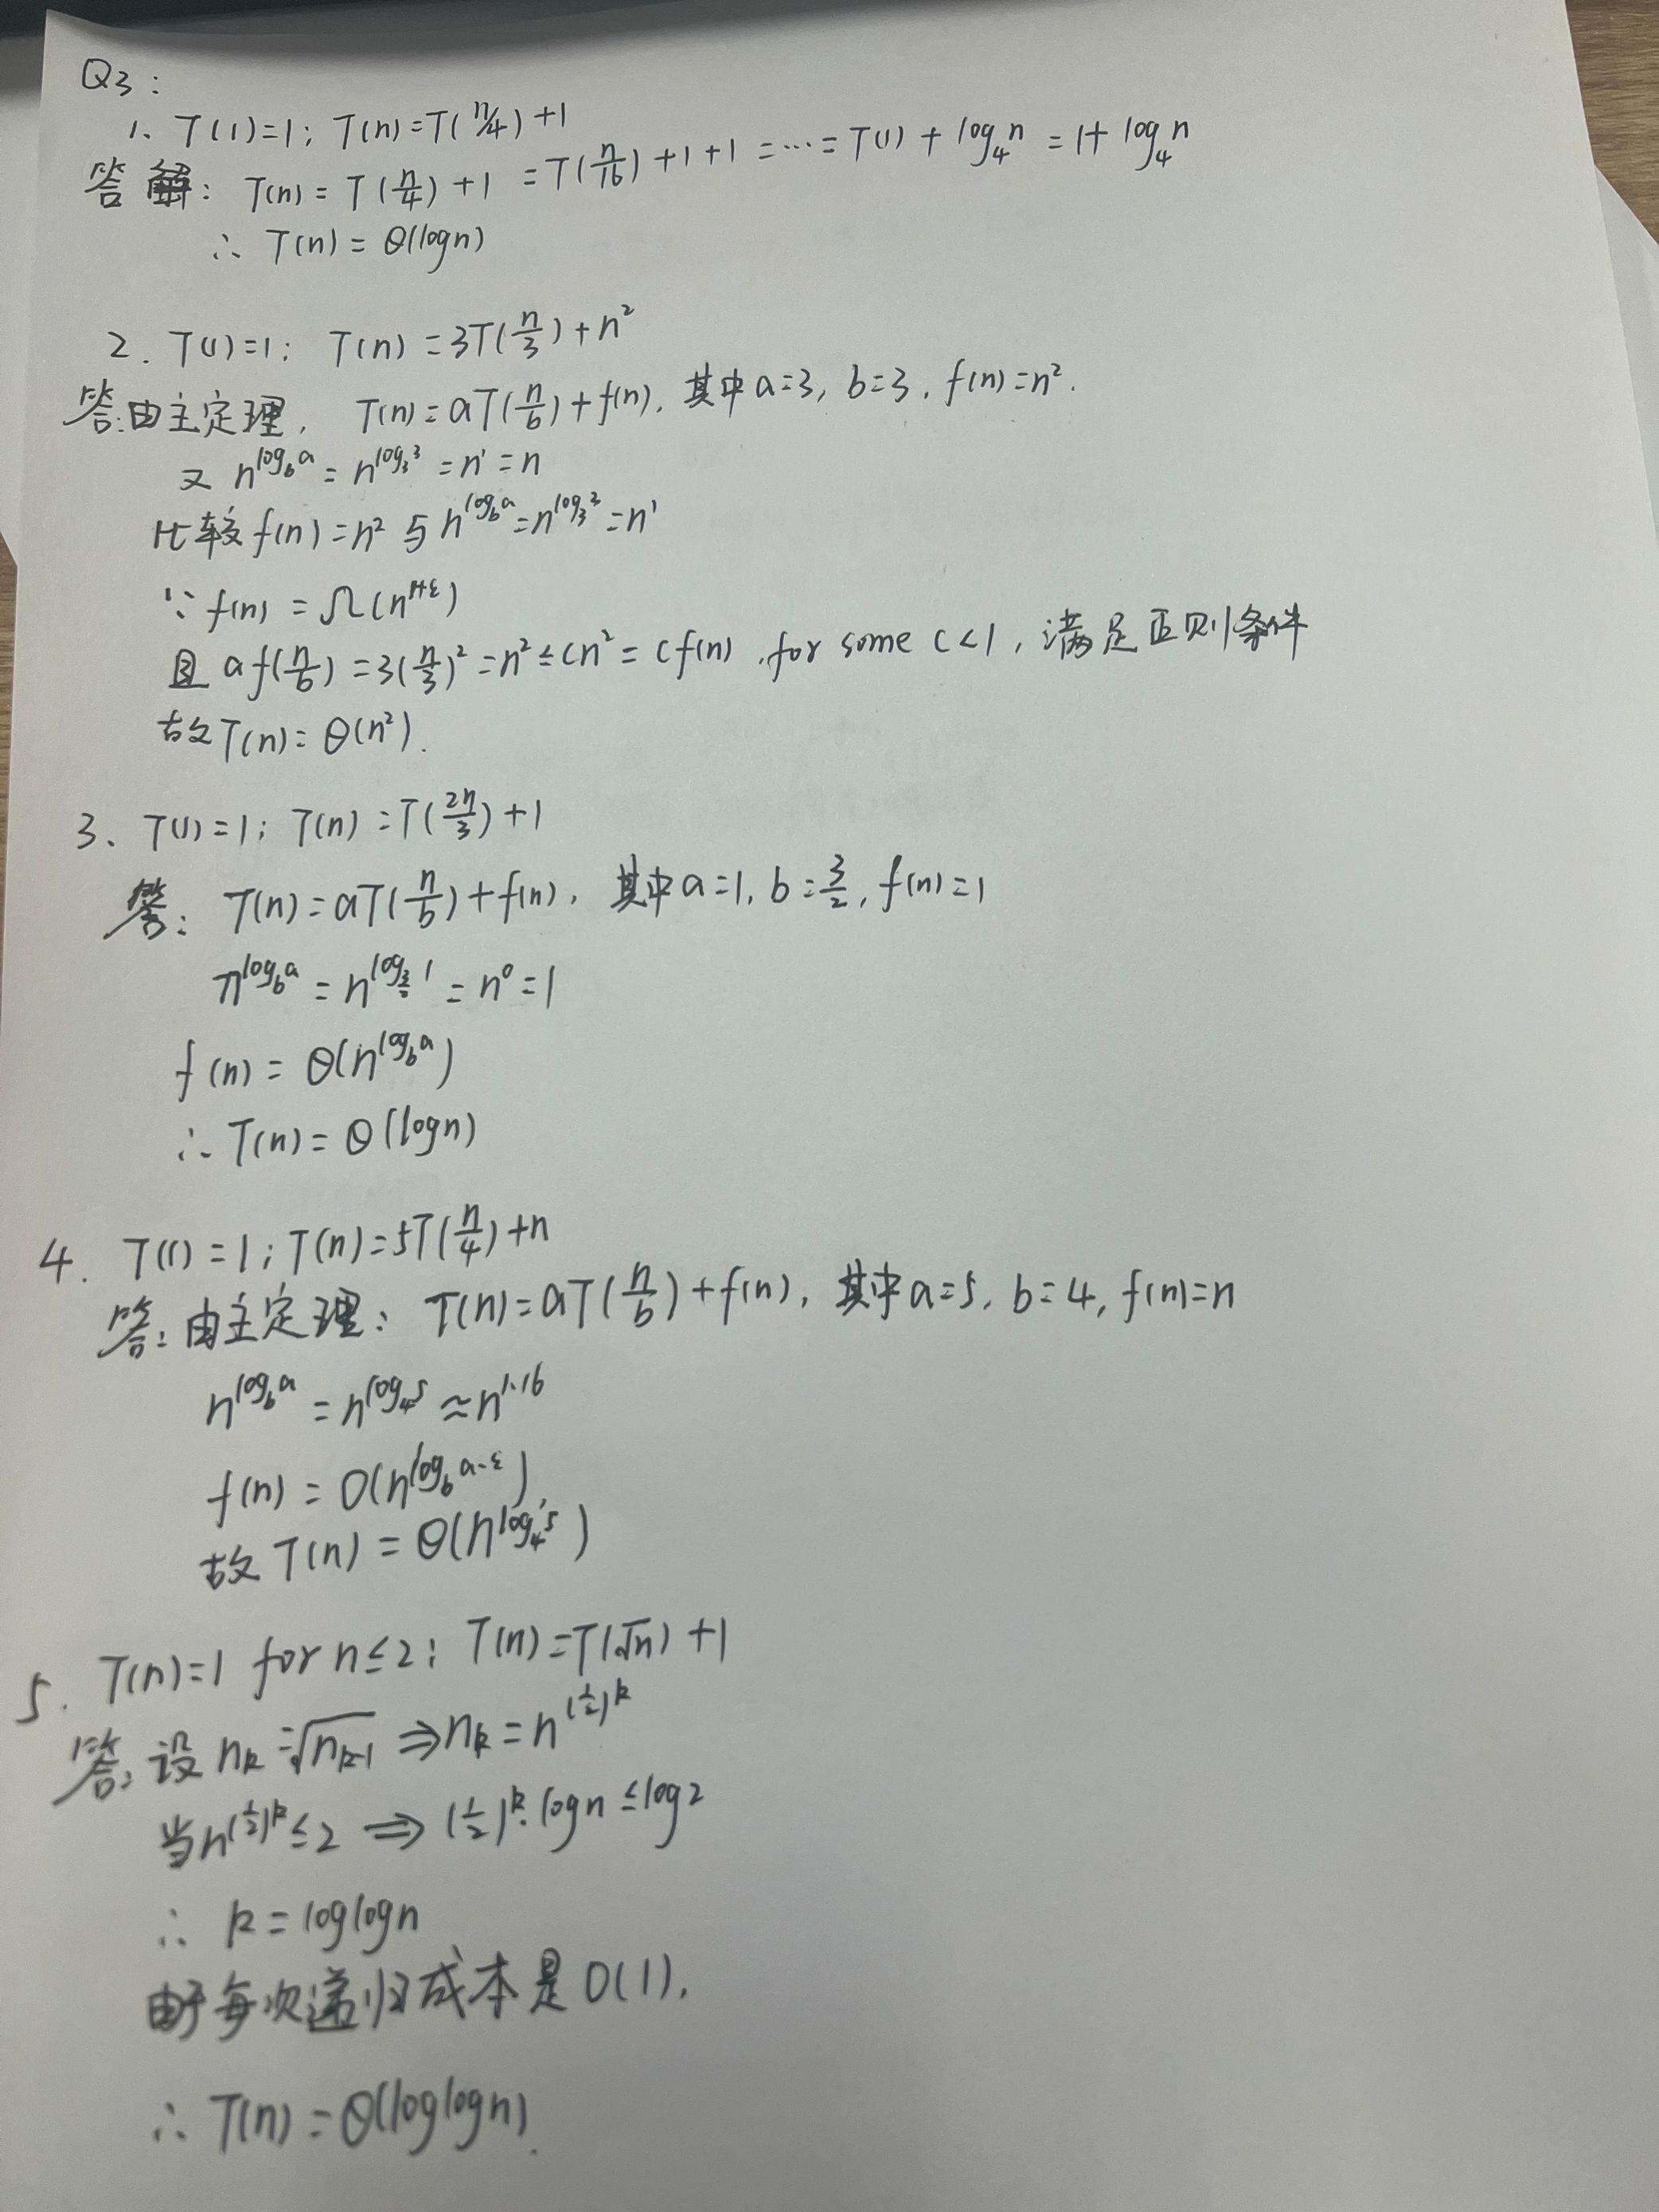 Q3：
1、T(1)=1; T(n)=T(n/4)+1
答解：T(n)=T(n/4)+1 =T(n/16)+1+1 =⋯=T(1)+log₄n =1+log₄n
∴ T(n)=Θ(logn)
2. T(1)=1; T(n)=3T(n/3)+n²
答：由主定理, T(n)=aT(n/b)+f(n), 其中a=3, b=3, f(n)=n².
又 n^(log_b a)=n^(log₃3)=n¹=n
比较f(n)=n²与n^(log_b a)=n^(log₃3)=n¹
∵ f(n)=Ω(n^(1+ε))
且 af(n/b)=3(n/3)²=n²≤cn²=cf(n), for some c<1, 满足正则条件
故T(n)=Θ(n²).
3、T(1)=1; T(n)=T(2n/3)+1
答：T(n)=aT(n/b)+f(n), 其中a=1, b=3/2, f(n)=1
n^(log_b a)=n^(log_(3/2) 1)=n⁰=1
f(n)=Θ(n^(log_b a))
∴ T(n)=Θ(logn)
4. T(1)=1; T(n)=5T(n/4)+n
答：由主定理：T(n)=aT(n/b)+f(n), 其中a=5, b=4, f(n)=n
n^(log_b a)=n^(log₄5)≈n^1.16
f(n)=O(n^(log_b a-ε)),
故T(n)=Θ(n^(log₄5))
5. T(n)=1 for n≤2; T(n)=T(√n)+1
答：设n_k=√(n_(k-1)) ⇒n_k=n^((1/2)^k)
当n^((1/2)^k)≤2 ⇒(1/2)^k·logn≤log2
∴ k=loglogn
由于每次递归成本是O(1),
∴ T(n)=Θ(loglogn).